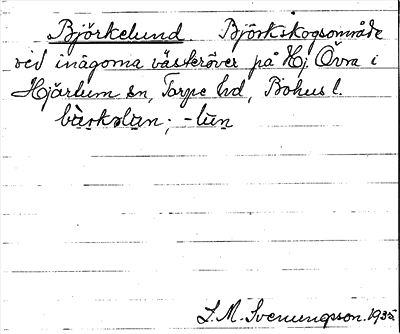 Björkelund Björkskogsområde
vid inägorna västeröver på Hj. Övra i
Hjärtum sn, Torpe hd, Bohus l.
bàrkəlun; -lun
S. M. Svenungsson. 1935